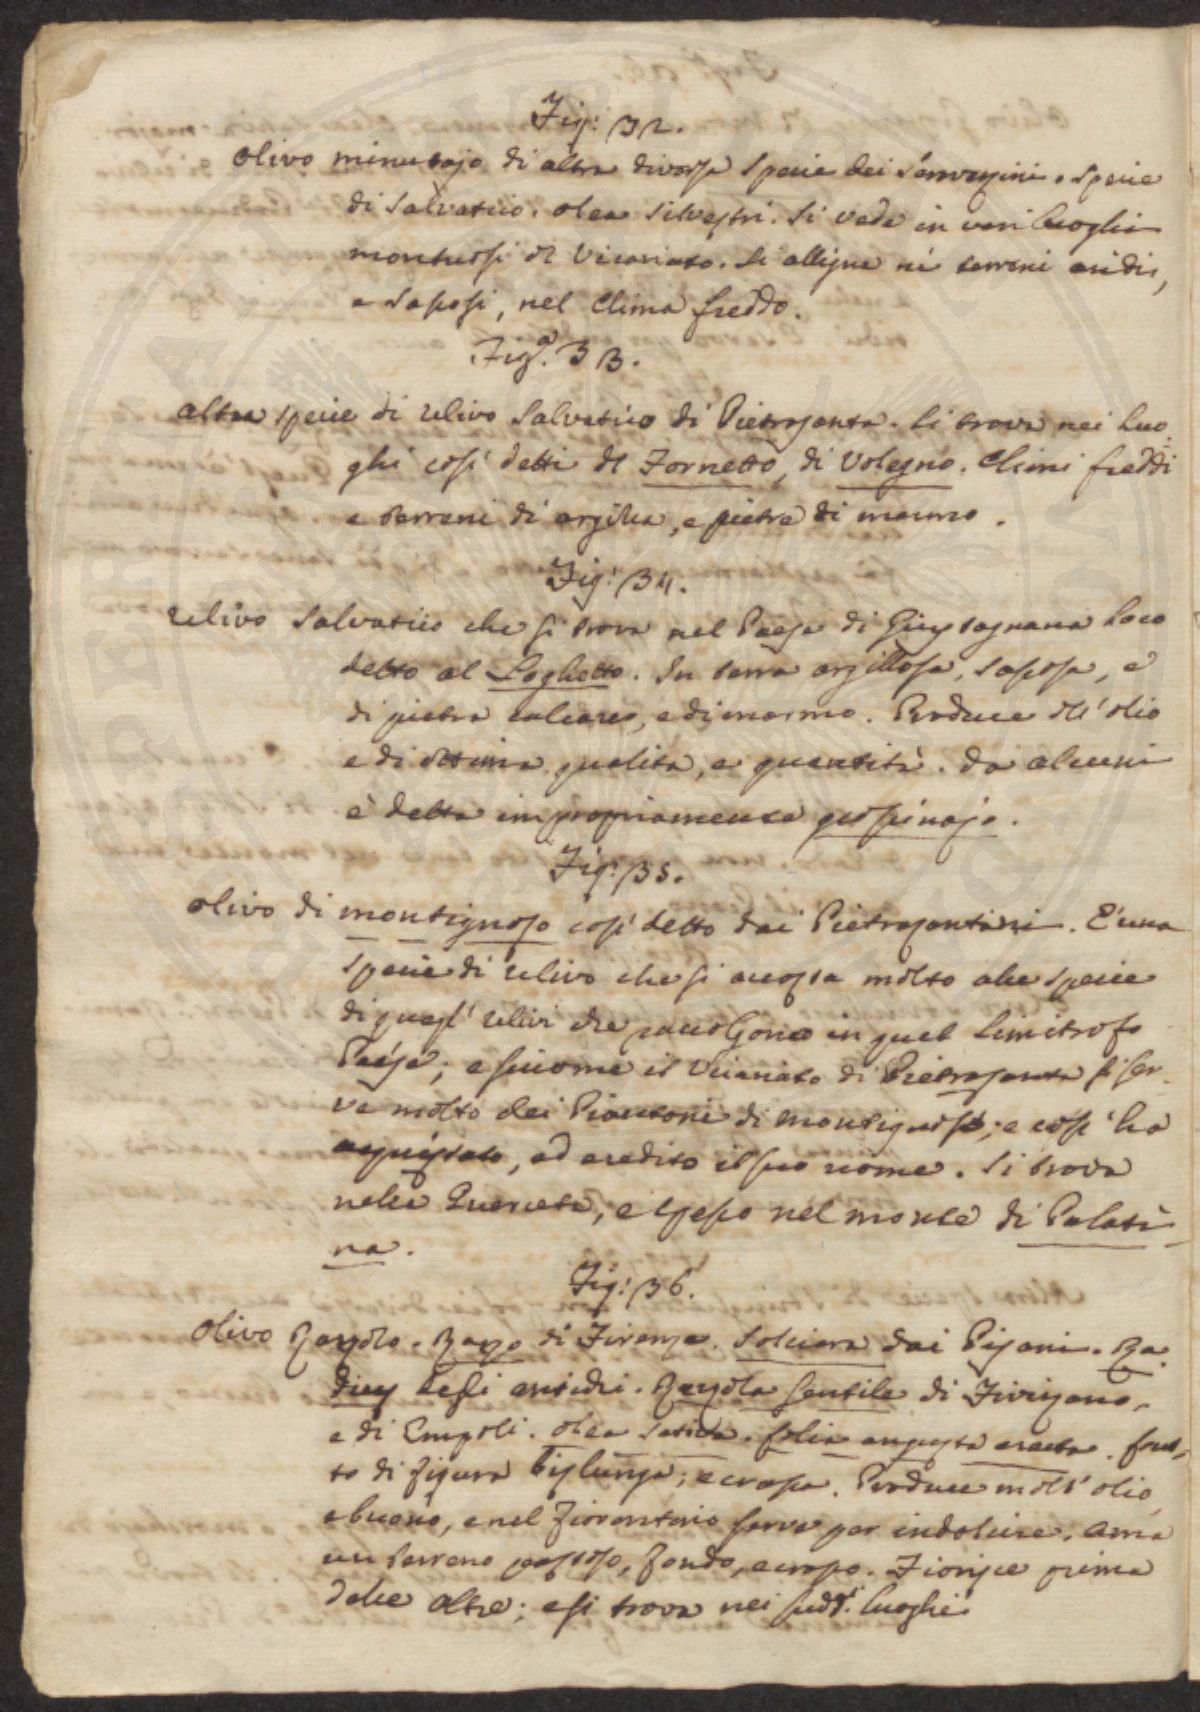 Fig: 32.
Olivo minutajo di altra diversa specie dei . specie
di Salvatico. Olea Silvestri. Si vede in vari luoghi
montuosi del Vicariato. Si alligna ne' terreni aridi,
e sassosi, nel Clima freddo.
Figa. 33.
Altra specie di Ulivo Salvatico di Pietrasanta. Si trova nei luo-
ghi così detti del Fornetto, di Volegno. Climi freddi
e terreni di argilla, e pietra di marmo.
Fig: 34.
Ulivo Salvatico che si trova nel Paese di Giustagnana loco
detto al . In terra argillosa, sassosa, e
di pietra calcarea, e di marmo. Produce dell'olio
e di ottima qualità, e quantità. Da alcuni
è detta impropriamente .
Fig: 35.
Olivo di montignoso così detto dai Pietrasantini. È una
specie di Ulivo che si accosta molto alle specie
di quegl'Ulivi che raccolgono in quel limitrofo
Paese; e siccome il Vicariato di Pietrasanta si ser-
ve molto dei Piantoni di montignoso; e così ha
acquistato, ed eredito il suo nome. Si trova
nella Querceta, e spesso nel monte di Palati-
na.
Fig: 36.
Olivo Razzolo. Razzo di Firenze. dai Pisani. Ra-
degli antichi. Gentile di ,
e di Empoli. Olea Sativa. folia angusta . frut-
to di figura bislunga; e crassa. Produce molt'olio,
e buono, e nel Fiorentino serve per indolcire. Ama
un terreno , fondo, e . Fiorisce prima
delle altre; e si trova nei sudd.i luoghi